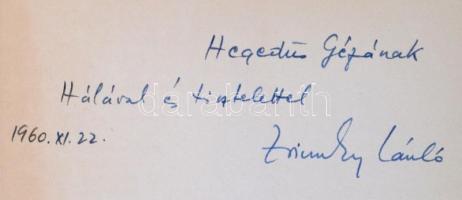 Hegedűs Gézának
Hálával és tisztelettel
1960. XI. 22.
László